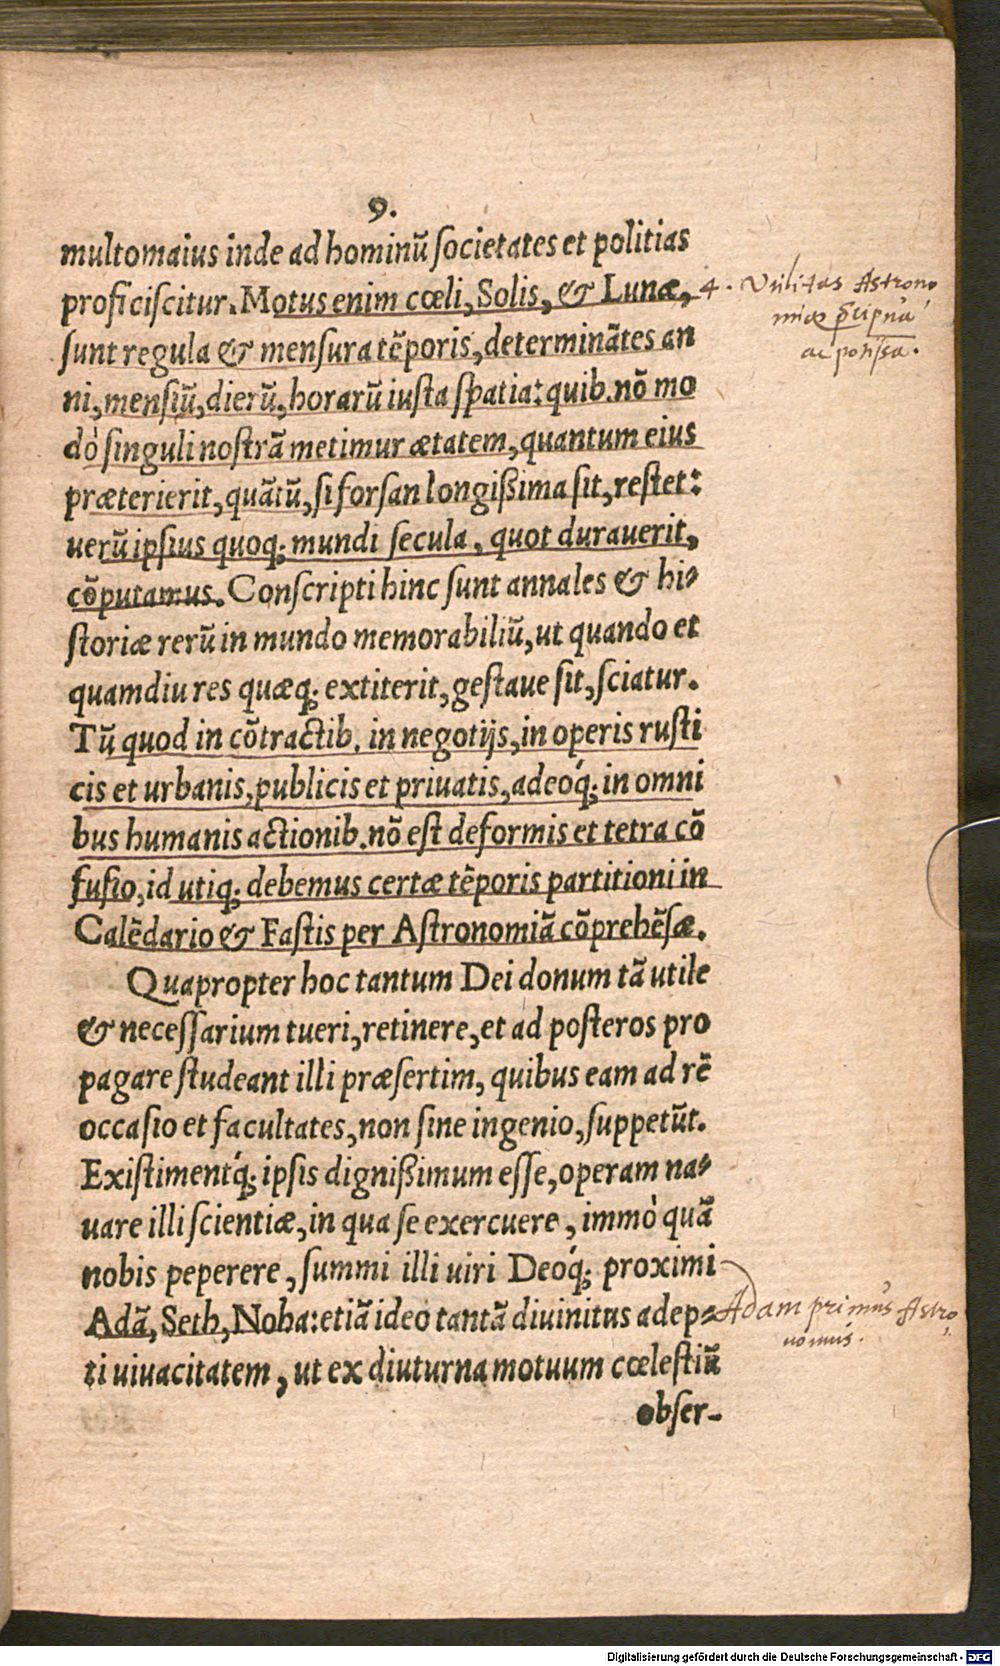 9.
multomaius inde ad hominũ ſocietates et politias
proficiſcitur. Motus enim cœli, Solis, & Lunæ,
4. Vtilitas Astrono
ſunt regula & menſura tẽporis, determinãtes an
miæ
ni, menſiũ, dierũ, horarũ iuſta ſpatia: quib. nõ mo
ac
dò ſinguli noſtrã metimur ætatem, quantum eius
præterierit, quãtũ, ſi forſan longißima ſit, reſtet:
uerũ ipſius quoq; mundi ſecula, quot durauerit,
cõputamus. Conſcripti hinc ſunt annales & hi⸗
ſtoriæ rerũ in mundo memorabiliũ, ut quando et
quamdiu res quæq; extiterit, geſtaue ſit, ſciatur.
Tũ quod in cõtractib. in negotijs, in operis ruſti
cis et urbanis, publicis et priuatis, adeóq; in omni
bus humanis actionib. nõ eſt deformis et tetra cõ
fuſio, id utiq; debemus certæ tẽporis partitioni in
Calẽdario & Faſtis per Aſtronomiã cõprehẽſæ.
Quapropter hoc tantum Dei donum tã utile
& neceſſarium tueri, retinere, et ad poſteros pro
pagare ſtudeant illi præſertim, quibus eam ad rẽ
occaſio et facultates, non ſine ingenio, ſuppetũt.
Exiſtimentq́; ipſis dignißimum eſſe, operam na⸗
uare illi ſcientiæ, in qua ſe exercuere, immò quã
nobis peperere, ſummi illi uiri Deóq; proximi
Adã, Seth, Noha: etiã ideo tantã diuinitus adep⸗
Adam primus Astro
nomus.
ti uiuacitatem, ut ex diuturna motuum cœleſtiũ
obſer-
Digitalisierung gefördert durch die Deutsche Forschungsgemeinschaft - DFG